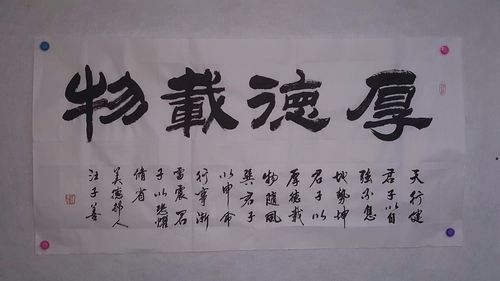 厚德載物
天行健
君子以自
強不息
地勢坤
君子以
厚德載
物隨風
巽君子
以申命
行事
雷震君
子以恐懼
脩省
美德人
汪子善